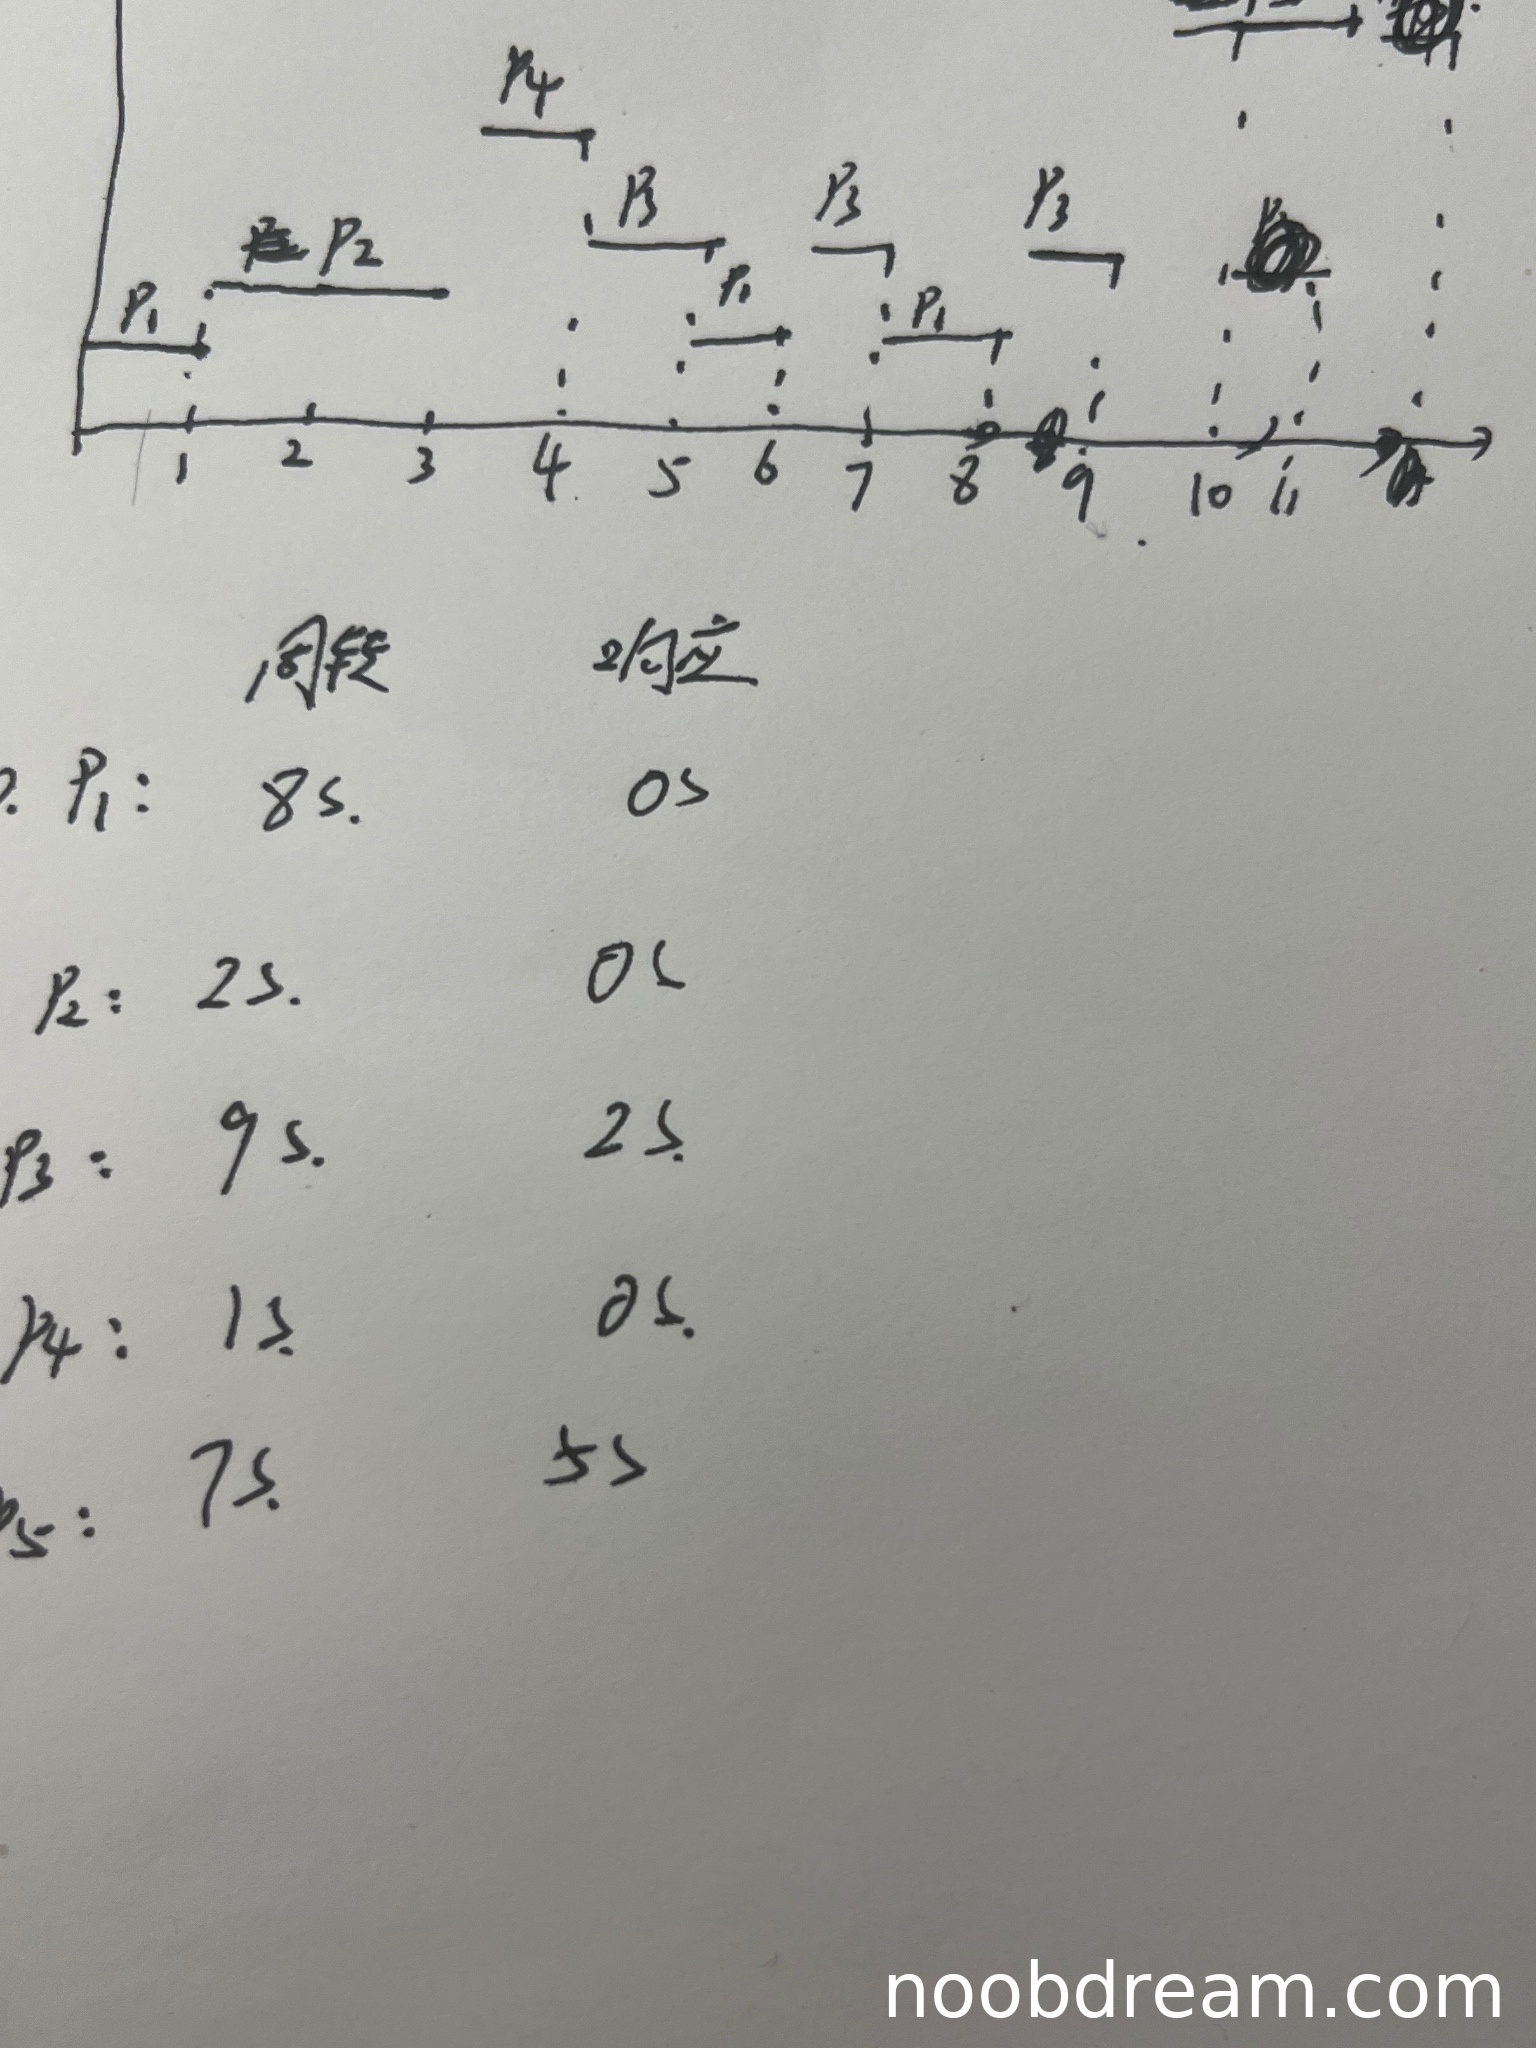 P4
P3 P3 P3
P2
P1 P1 P1
1 2 3 4 5 6 7 8 9 10 11
周转 响应
P1: 8s. 0s
P2: 2s. 0s
P3: 9s. 2s.
P4: 1s. 0s.
P5: 7s. 5s
noobdream.com